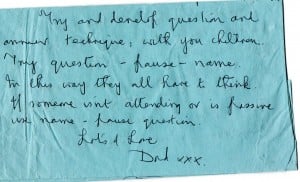 Try and develop question and
answer technique, with you children.
Try question - pause - name.
In this way they all have to think.
If someone isnt attending or is passive
use name - pause question.
Lots of Love
Dad xxx.